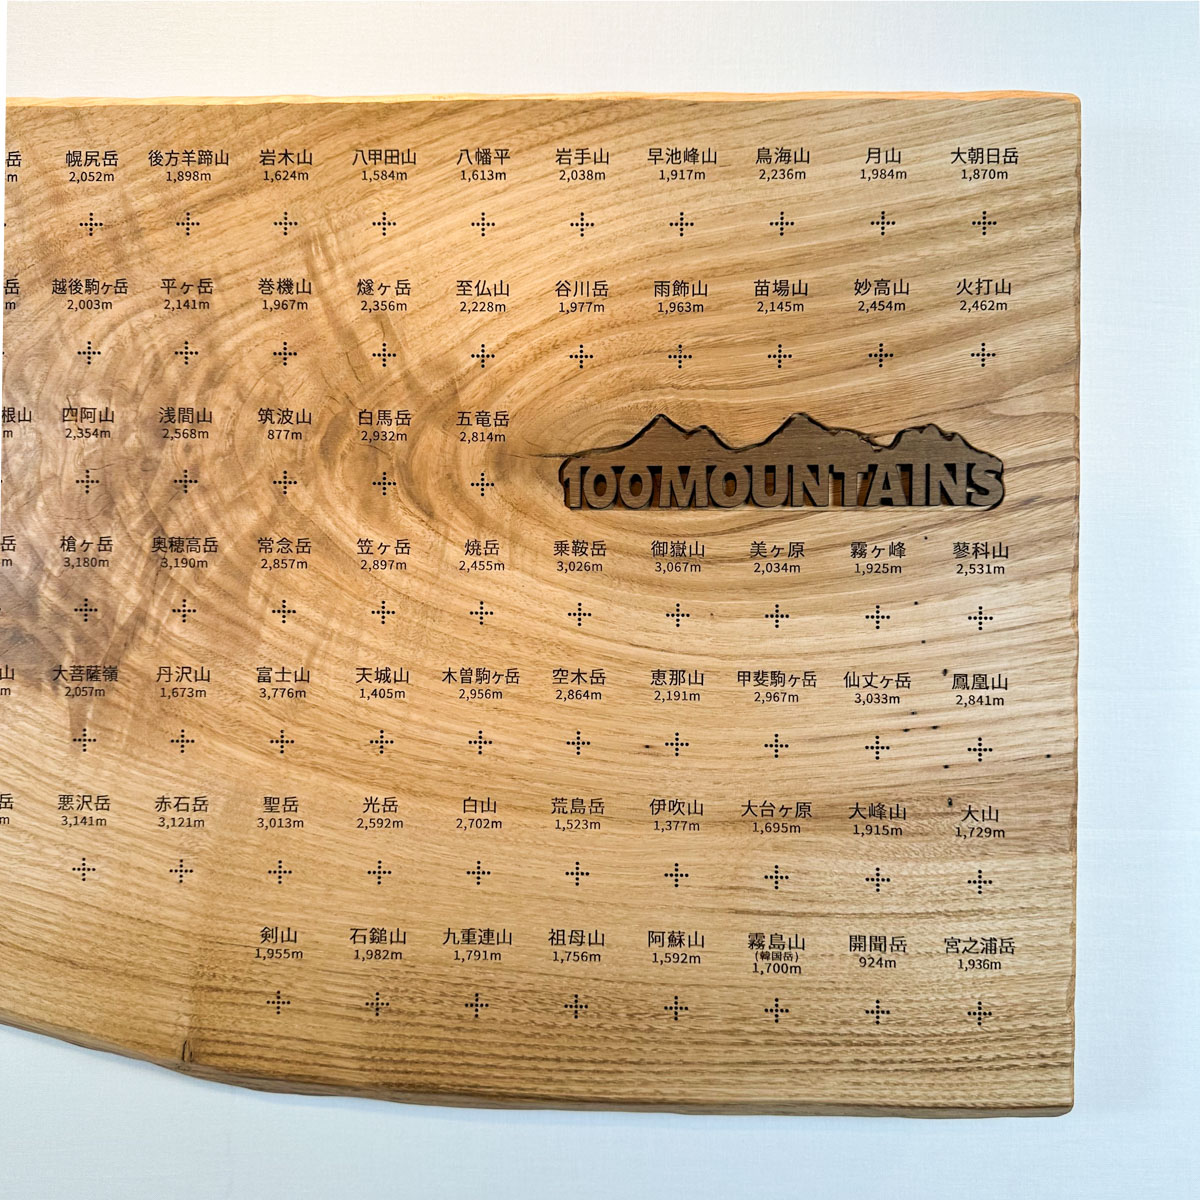 岳 幌尻岳 後方羊蹄山 岩木山 八甲田山 八幡平 岩手山 早池峰山 鳥海山 月山 大朝日岳
m 2,052m 1,898m 1,624m 1,584m 1,613m 2,038m 1,917m 2,236m 1,984m 1,870m
岳 越後駒ヶ岳 平ヶ岳 巻機山 燧ヶ岳 至仏山 谷川岳 雨飾山 苗場山 妙高山 火打山
m 2,003m 2,141m 1,967m 2,356m 2,228m 1,977m 1,963m 2,145m 2,454m 2,462m
根山 四阿山 浅間山 筑波山 白馬岳 五竜岳
m 2,354m 2,568m 877m 2,932m 2,814m
100MOUNTAINS
岳 槍ヶ岳 奥穂高岳 常念岳 笠ヶ岳 焼岳 乗鞍岳 御嶽山 美ヶ原 霧ヶ峰 蓼科山
m 3,180m 3,190m 2,857m 2,897m 2,455m 3,026m 3,067m 2,034m 1,925m 2,531m
山 大菩薩嶺 丹沢山 富士山 天城山 木曽駒ヶ岳 空木岳 恵那山 甲斐駒ヶ岳 仙丈ヶ岳 鳳凰山
m 2,057m 1,673m 3,776m 1,405m 2,956m 2,864m 2,191m 2,967m 3,033m 2,841m
岳 悪沢岳 赤石岳 聖岳 光岳 白山 荒島岳 伊吹山 大台ヶ原 大峰山 大山
m 3,141m 3,121m 3,013m 2,592m 2,702m 1,523m 1,377m 1,695m 1,915m 1,729m
剣山 石鎚山 九重連山 祖母山 阿蘇山 霧島山 開聞岳 宮之浦岳
(韓国岳)
1,955m 1,982m 1,791m 1,756m 1,592m 1,700m 924m 1,936m